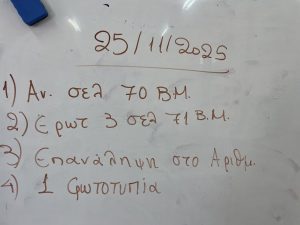 25/11/2025
1) Αν. σελ 70 Β.Μ.
2) Ερωτ 3 σελ 71 Β.Μ.
3) Επανάληψη στο Αριθμ.
4) 1 φωτοτυπία